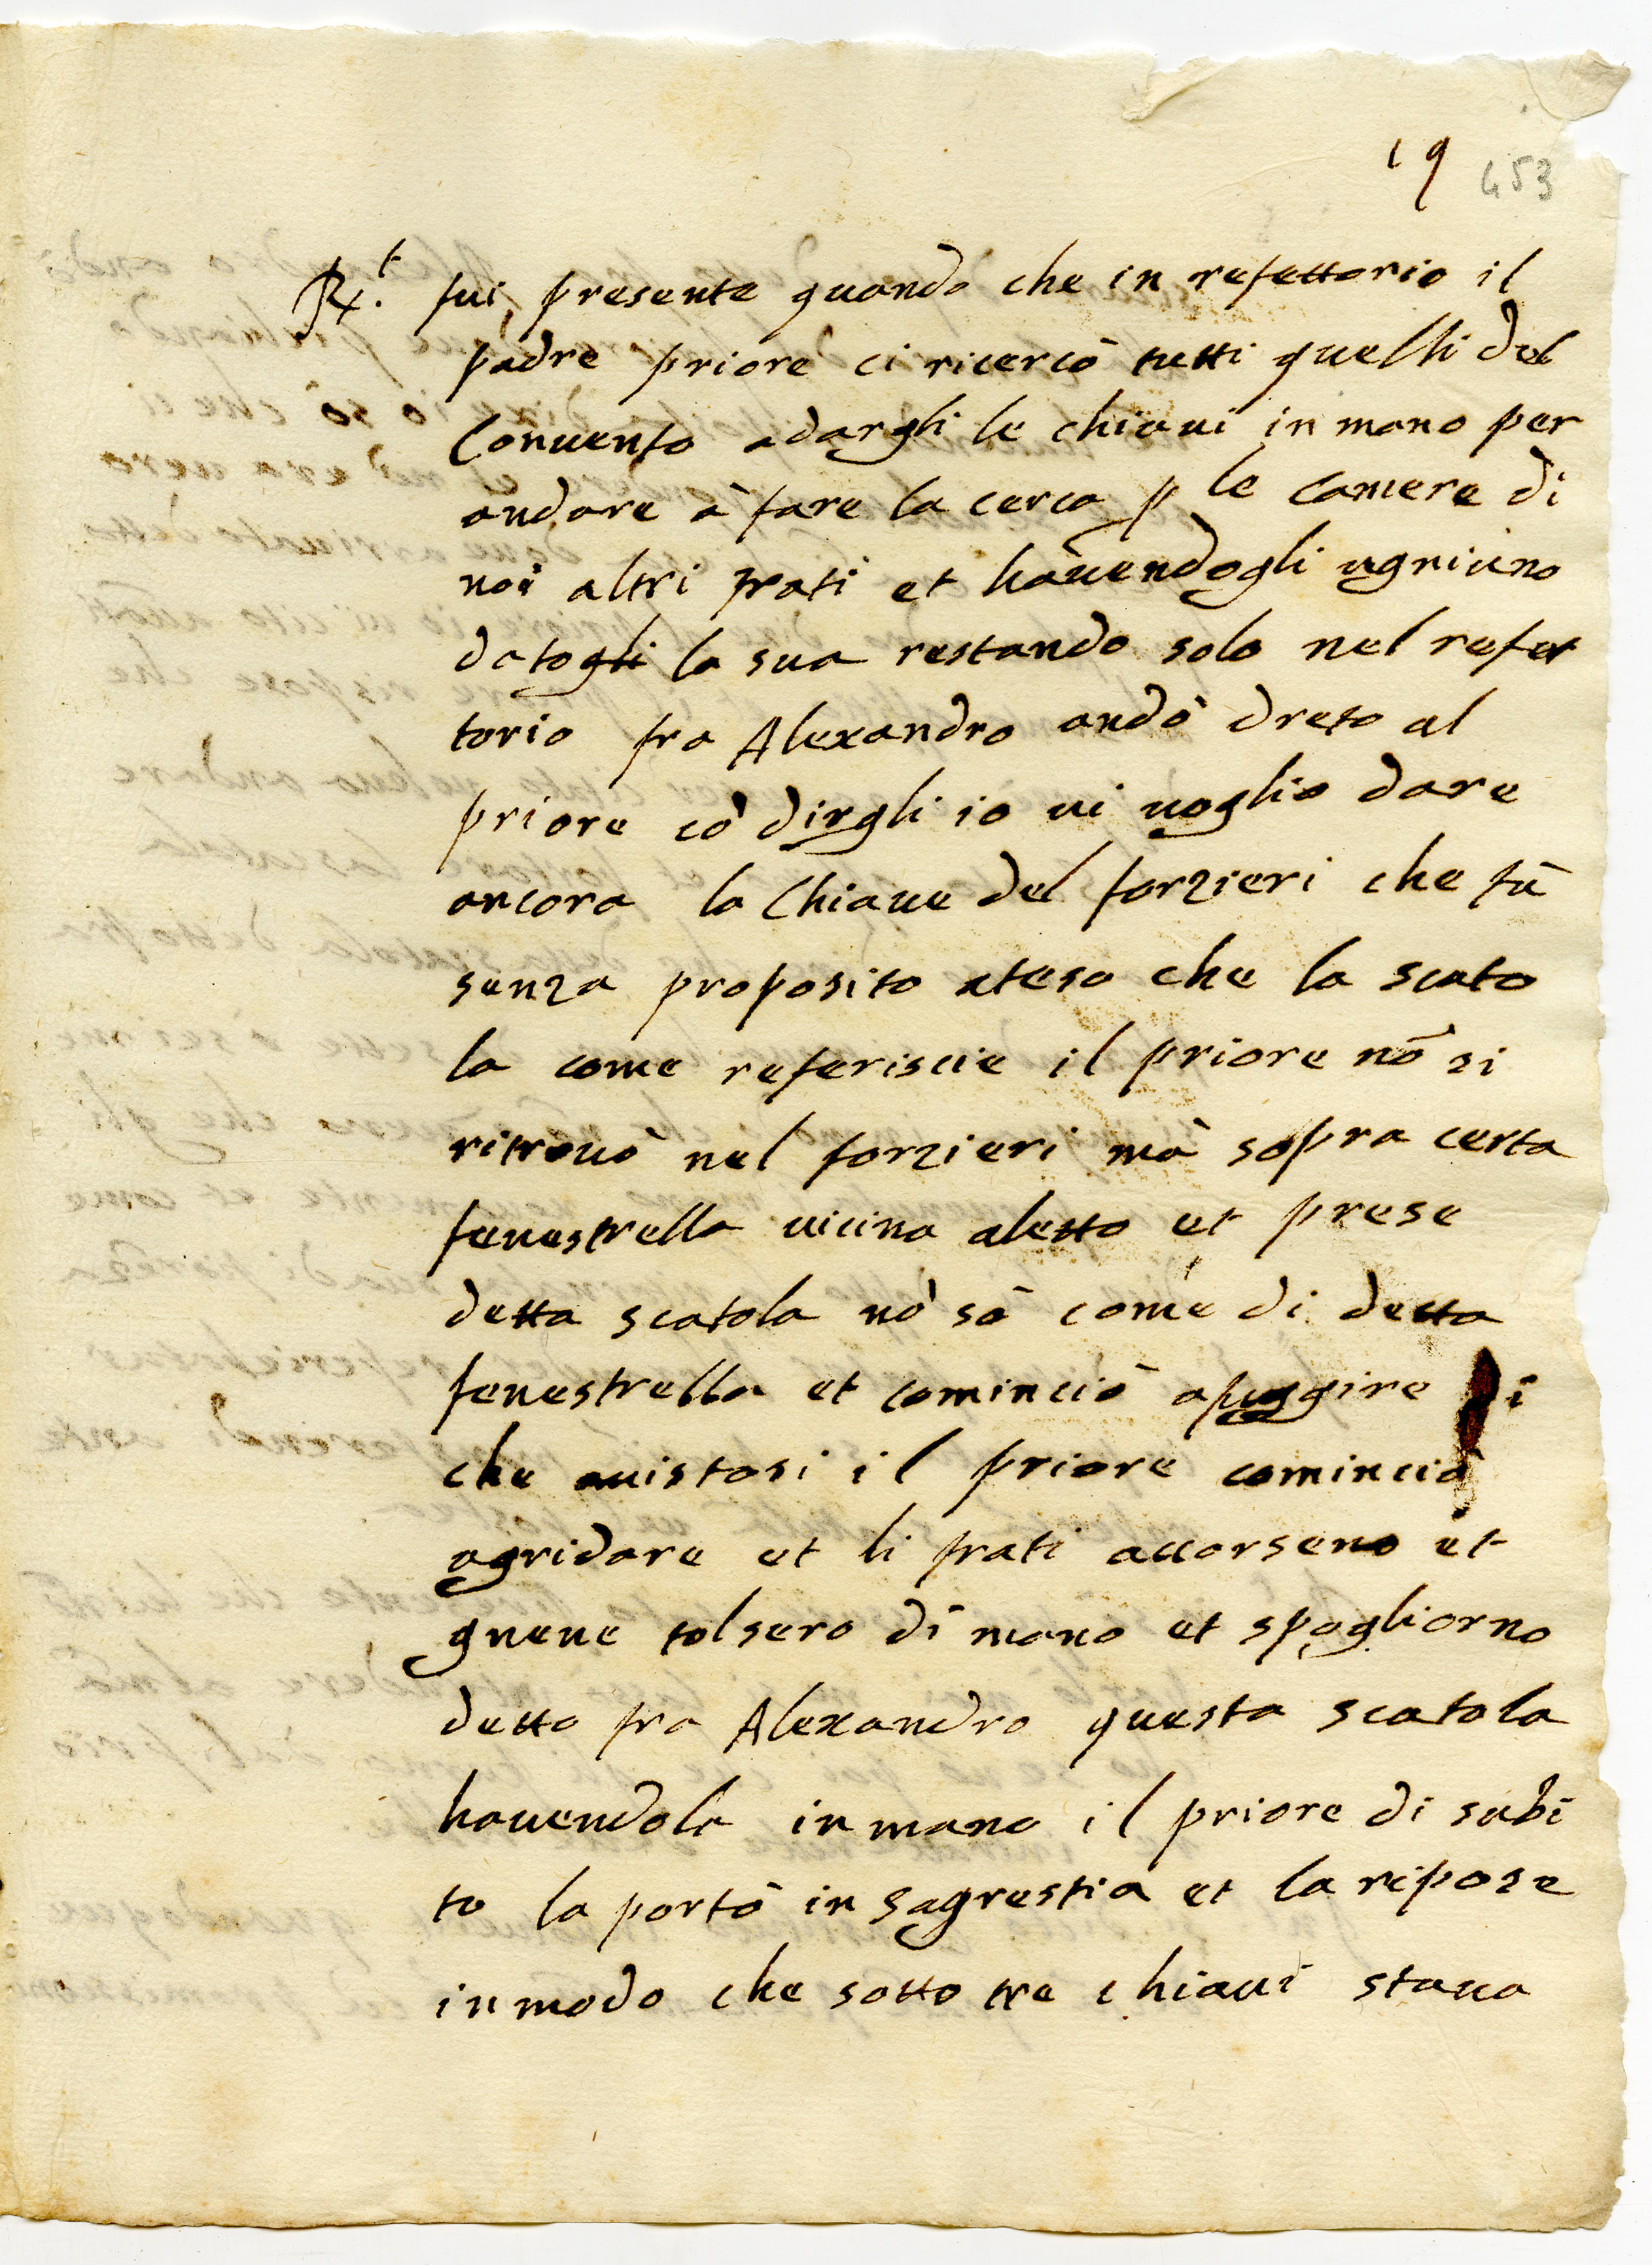 19 453
R.t fui presente quando che in refettorio il
padre priore ci ricercò tutti quelli del
Conuento adargli le chiaui in mano per
andare à fare la cerca p le camere di
noi altri frati et hauendogli ugniuno
datogli la sua restando solo nel refet
torio fra Alexandro andò dreto al
priore cõ dirgli io ui uoglio dare
ancora la Chiaue del forzieri che fù
senza proposito ateso che la scato
la come referiscie il priore nõ si
ritrouò nel forzieri mà sopra certa
fenestrella uicina aletto et prese
detta scatola nõ sò come di detta
fenestrella et cominciò afuggire di
che auistosi il priore cominciò
agridare et li frati accorseno et
gnene tolsero di mano et spogliorno
detto fra Alexandro questa scatola
hauendola in mano il priore di subi
to la portò in sagrestia et la ripose
in modo che sotto tre chiaui staua